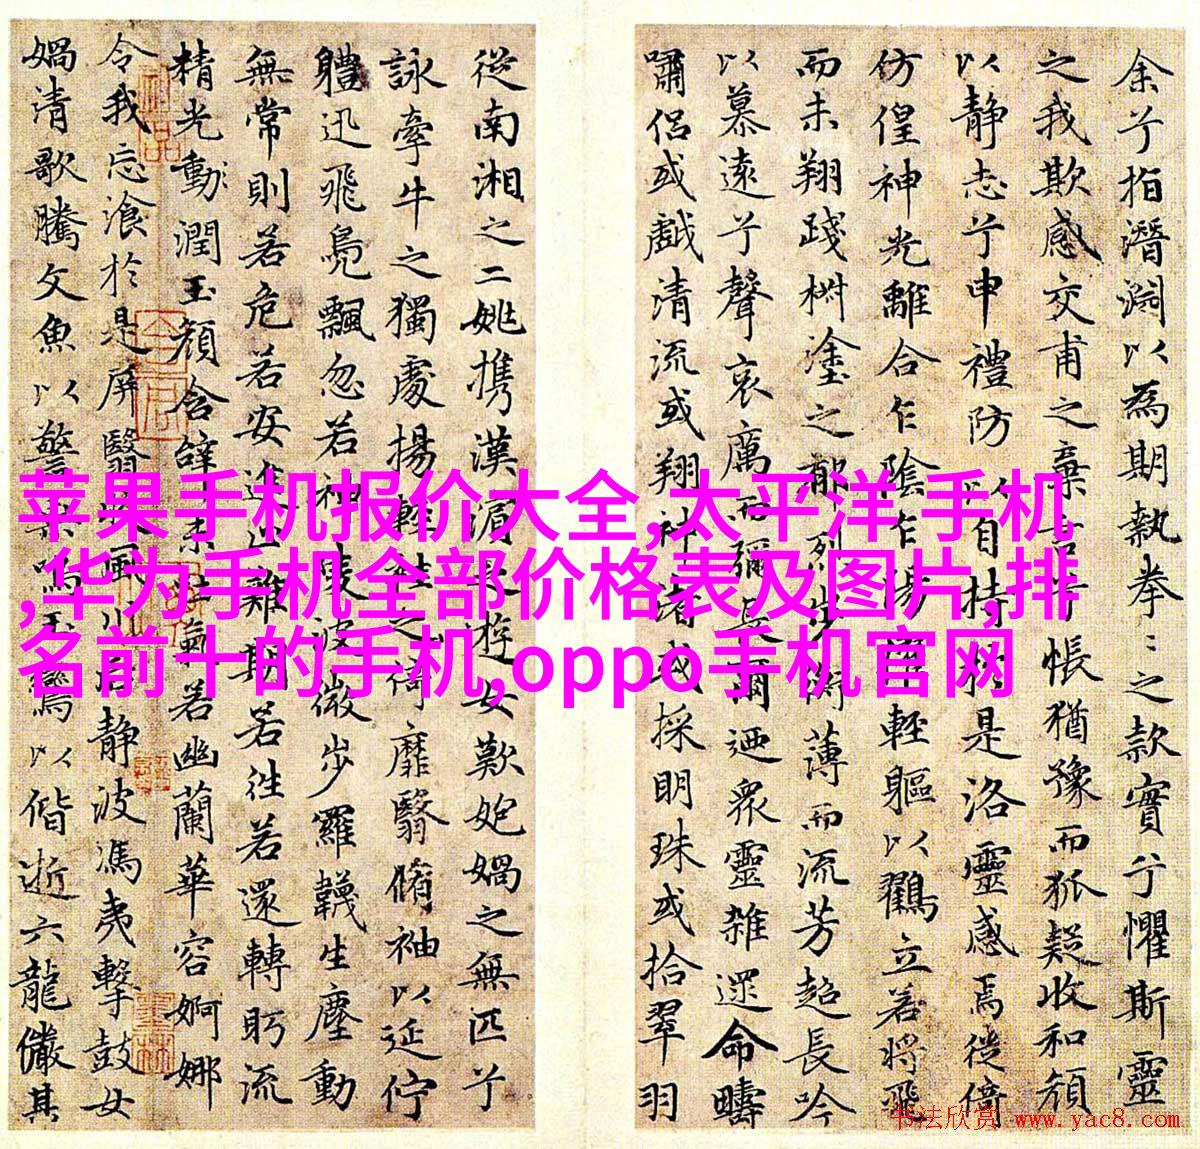 余兮指潛淵以為期執拳〻之款實兮懼斯靈
之我欺感交甫之棄言兮悵猶豫而狐疑收和顏
以静志兮申禮防以自持於是洛靈感焉徙倚
仿偟神光離合乍陰乍陽擢輕軀以鶴立若將飛
而未翔踐椒塗之郁烈步蘅薄而流芳超長吟
以慕遠兮聲哀厲而彌長爾迺眾靈雜遝命疇
嘯侶或戲清流或翔神渚或採明珠或拾翠羽
從南湘之二姚攜漢濱之游女歎匏媧之無匹兮
詠牽牛之獨處揚輕袿之倚靡翳脩袖以延佇
體迅飛鳧飄忽若神陵波微步羅韈生塵動
無常則若危若安進止難期若往若還轉眄流
精光動潤玉顏含辭未吐氣若幽蘭華容婀娜
令我忘飡於是屏翳收風川后静波馮夷擊鼓女
媧清歌騰文魚以警乘鳴玉鸞以偕逝六龍儼其
苹果手机报价大全,太平洋 手机
,华为手机全部价格表及图片,排
名前十的手机,oppo手机官网
书法欣赏 www.yac8.com